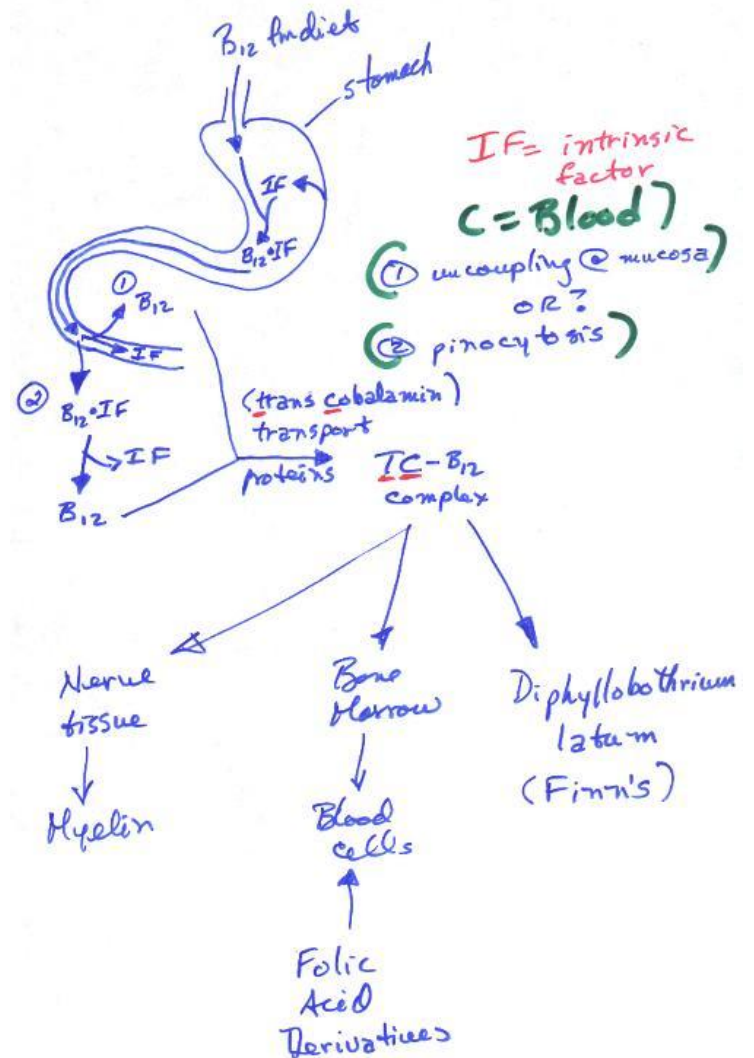 B12 fm diet
stomach
IF
B12•IF
IF = intrinsic
factor
C = Blood)
(① uncoupling @ mucosa)
OR ?
(② pinocytosis)
① B12
IF
② B12•IF
IF
B12
(trans cobalamin)
transport
proteins
TC-B12
complex
Nerve
tissue
Myelin
Bone
Marrow
Blood
cells
Folic
Acid
Derivatives
Diphyllobothrium
latum
(Finn's)